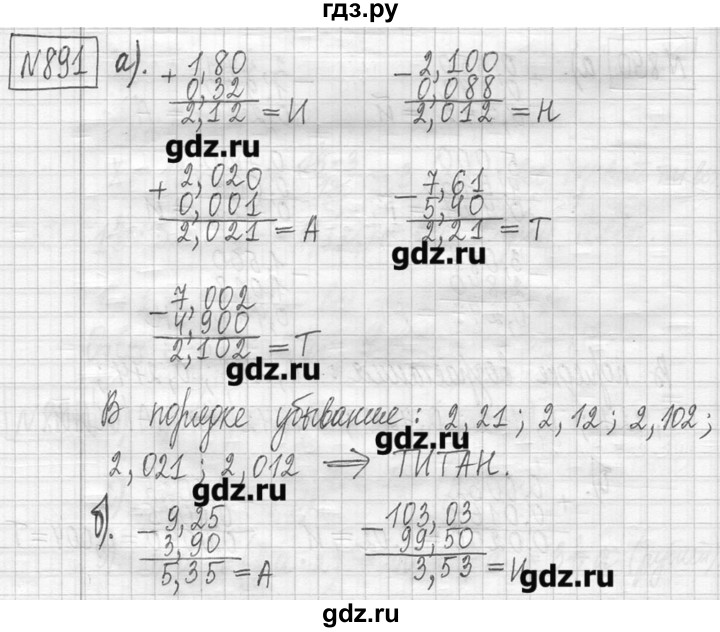 гдз.ру
№891 а). + 1,80 - 2,100
0,32 0,088
2,12 = И 2,012 = Н
gdz.ru
+ 2,020 - 7,61
0,001 5,40
2,021 = А 2,21 = Т
gdz.ru
- 7,002
4,900
2,102 = Т
gdz.ru
В порядке убывание: 2,21; 2,12; 2,102;
gdz.ru
2,021; 2,012 ⇒ ТИТАН.
gdz.ru
б). - 9,25 - 103,03
3,90 99,50
5,35 = А 3,53 = И
gdz.ru
gdz.ru